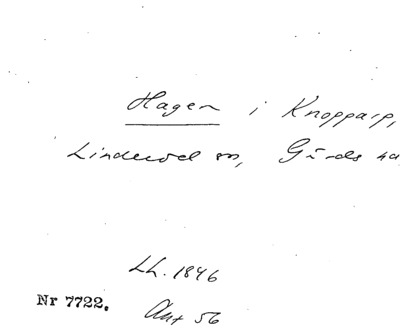 Hagen i Knopparp,
Linderöd sn, Gärds hä
Lh. 1846
Nr 7722. Ant 56